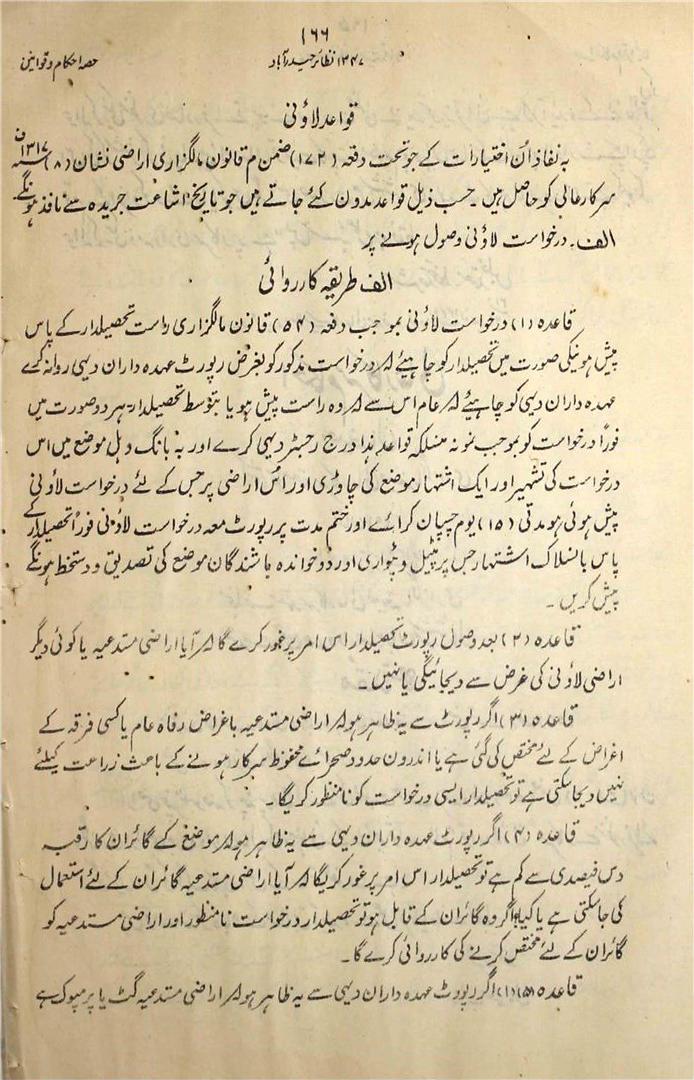 ۱۶۶
حصہ احکام و قوانین ۱۳۴۷ نظائر حیدرآباد
قواعد لاؤنی
بہ نفاذ اُن اختیارات کے جو تحت دفعہ (۱۷۲) ضمن م قانون مالگزاری اراضی نشان (۸) ۱۳۱۷ ف
سرکار عالی کو حاصل ہیں۔ حسب ذیل قواعد مدون کئے جاتے ہیں جو تاریخ اشاعت جریدہ سے نافذ ہونگے۔
الف۔ درخواست لاؤنی وصول ہونے پر
الف طریقہ کارروائی
قاعدہ (۱) درخواست لاؤنی بموجب دفعہ (۵۴) قانون مالگزاری راست تحصیلدار کے پاس
پیش ہونیکی صورت میں تحصیلدار کو چاہیئے کہ درخواست مذکور کو بغرض رپورٹ عہدہ داران دیہی روانہ کرے
عہدہ داران دیہی کو چاہیئے کہ عام اس سے کہ وہ راست پیش ہو یا بتوسط تحصیلدار۔ ہر دو صورت میں
فوراً درخواست کو بموجب نمونہ منسلکہ قواعد ہذا درج رجسٹر دیہی کرے اور بہ بانگ دہل موضع میں اس
درخواست کی تشہیر اور ایک اشتہار موضع کی چاوڑی اور اُس اراضی پر جس کے لئے درخواست لاؤنی
پیش ہوئی ہو مدتی (۱۵) یوم چسپان کرائے اور ختم مدت پر رپورٹ معہ درخواست لاؤنی فوراً تحصیلدار کے
پاس بانسلاک اشتہار جس پر پٹیل و پٹواری اور دو خواندہ باشندگان موضع کی تصدیق و دستخط ہونگے
پیش کریں۔
قاعدہ (۲) بعد وصول رپورٹ تحصیلدار اس امر پر غور کرے گا کہ آیا اراضی مستدعیہ یا کوئی دیگر
اراضی لاؤنی کی غرض سے دیجائیگی یا نہیں۔
قاعدہ (۳) اگر رپورٹ سے یہ ظاہر ہو کہ اراضی مستدعیہ باغراض رفاہ عام یا کسی فرقہ کے
اغراض کے لئے مختص کی گئی ہے یا اندرون حدود صحرائے محفوظ سرکار ہونے کے باعث زراعت کیلئے
نہیں دیجاسکتی ہے تو تحصیلدار ایسی درخواست کو نامنظور کریگا۔
قاعدہ (۴) اگر رپورٹ عہدہ داران دیہی سے یہ ظاہر ہو کہ موضع کے گائران کا رقبہ
دس فیصدی سے کم ہے تو تحصیلدار اس امر پر غور کریگا کہ آیا اراضی مستدعیہ گائران کے لئے استعمال
کی جاسکتی ہے یا کیا؟ اگر وہ گائران کے قابل ہو تو تحصیلدار درخواست نامنظور اور اراضی مستدعیہ کو
گائران کے لئے مختص کرنے کی کارروائی کرے گا۔
قاعدہ (۵) (۱) اگر رپورٹ عہدہ داران دیہی سے یہ ظاہر ہو کہ اراضی مستدعیہ گٹ یا پرمپوک ہے